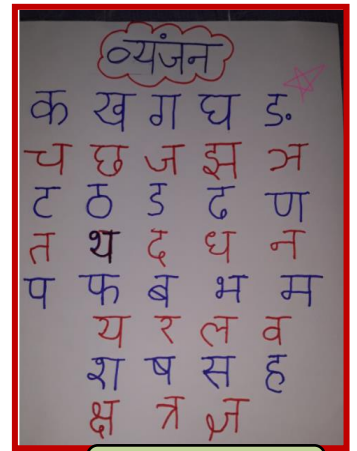 व्यंजन
क ख ग घ ङ
च छ ज झ ञ
ट ठ ड ढ ण
त थ द ध न
प फ ब भ म
य र ल व
श ष स ह
क्ष त्र ज्ञ